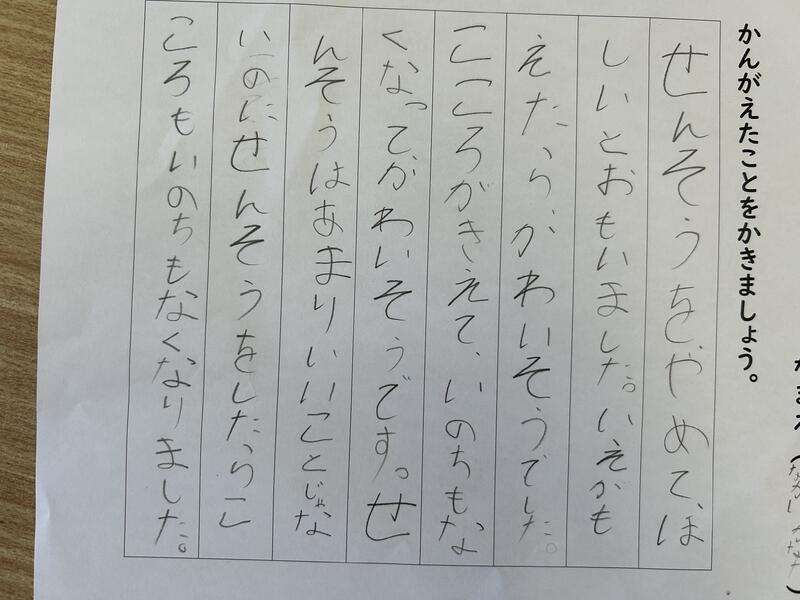 かんがえたことをかきましょう。
せんそうを、やめて、ほ
しいとおもいました。いえがも
えたら、かわいそうでした。
こころがきえて、いのちもな
くなって、かわいそうです。せ
んそうはあまりいいことじゃな
いのに、せんそうをしたらこ
ころもいのちもなくなりました。